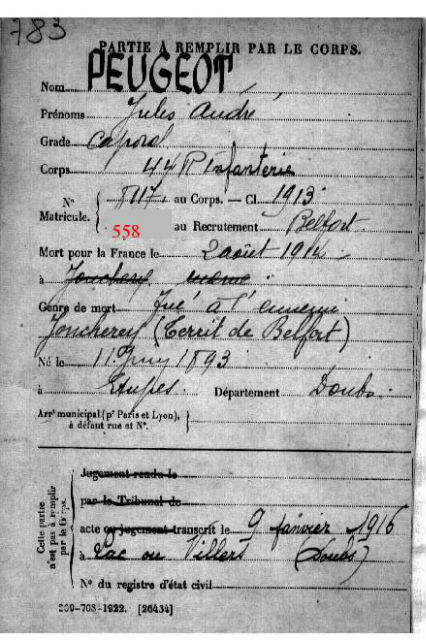 783
PARTIE À REMPLIR PAR LE CORPS.
Nom PEUGEOT
Prénoms Jules André
Grade caporal
Corps 44 R Infanterie
N° Matricule. { 5117 au Corps. — Cl. 1913
558 au Recrutement Belfort
Mort pour la France le 2 août 1914
à Joncherey
Genre de mort Tué à l'ennemi
Joncherey (Territ de Belfort)
Né le 11 Juin 1893
à Etupes Département Doubs
Arrt municipal (pr Paris et Lyon),
à défaut rue et N°.
Cette partie n'est pas à remplir par le Corps.
Jugement rendu le
par le Tribunal de
acte ou jugement transcrit le 9 janvier 1916
à Lac ou Villers (Doubs)
N° du registre d'état civil
269-708-1922. [26434]